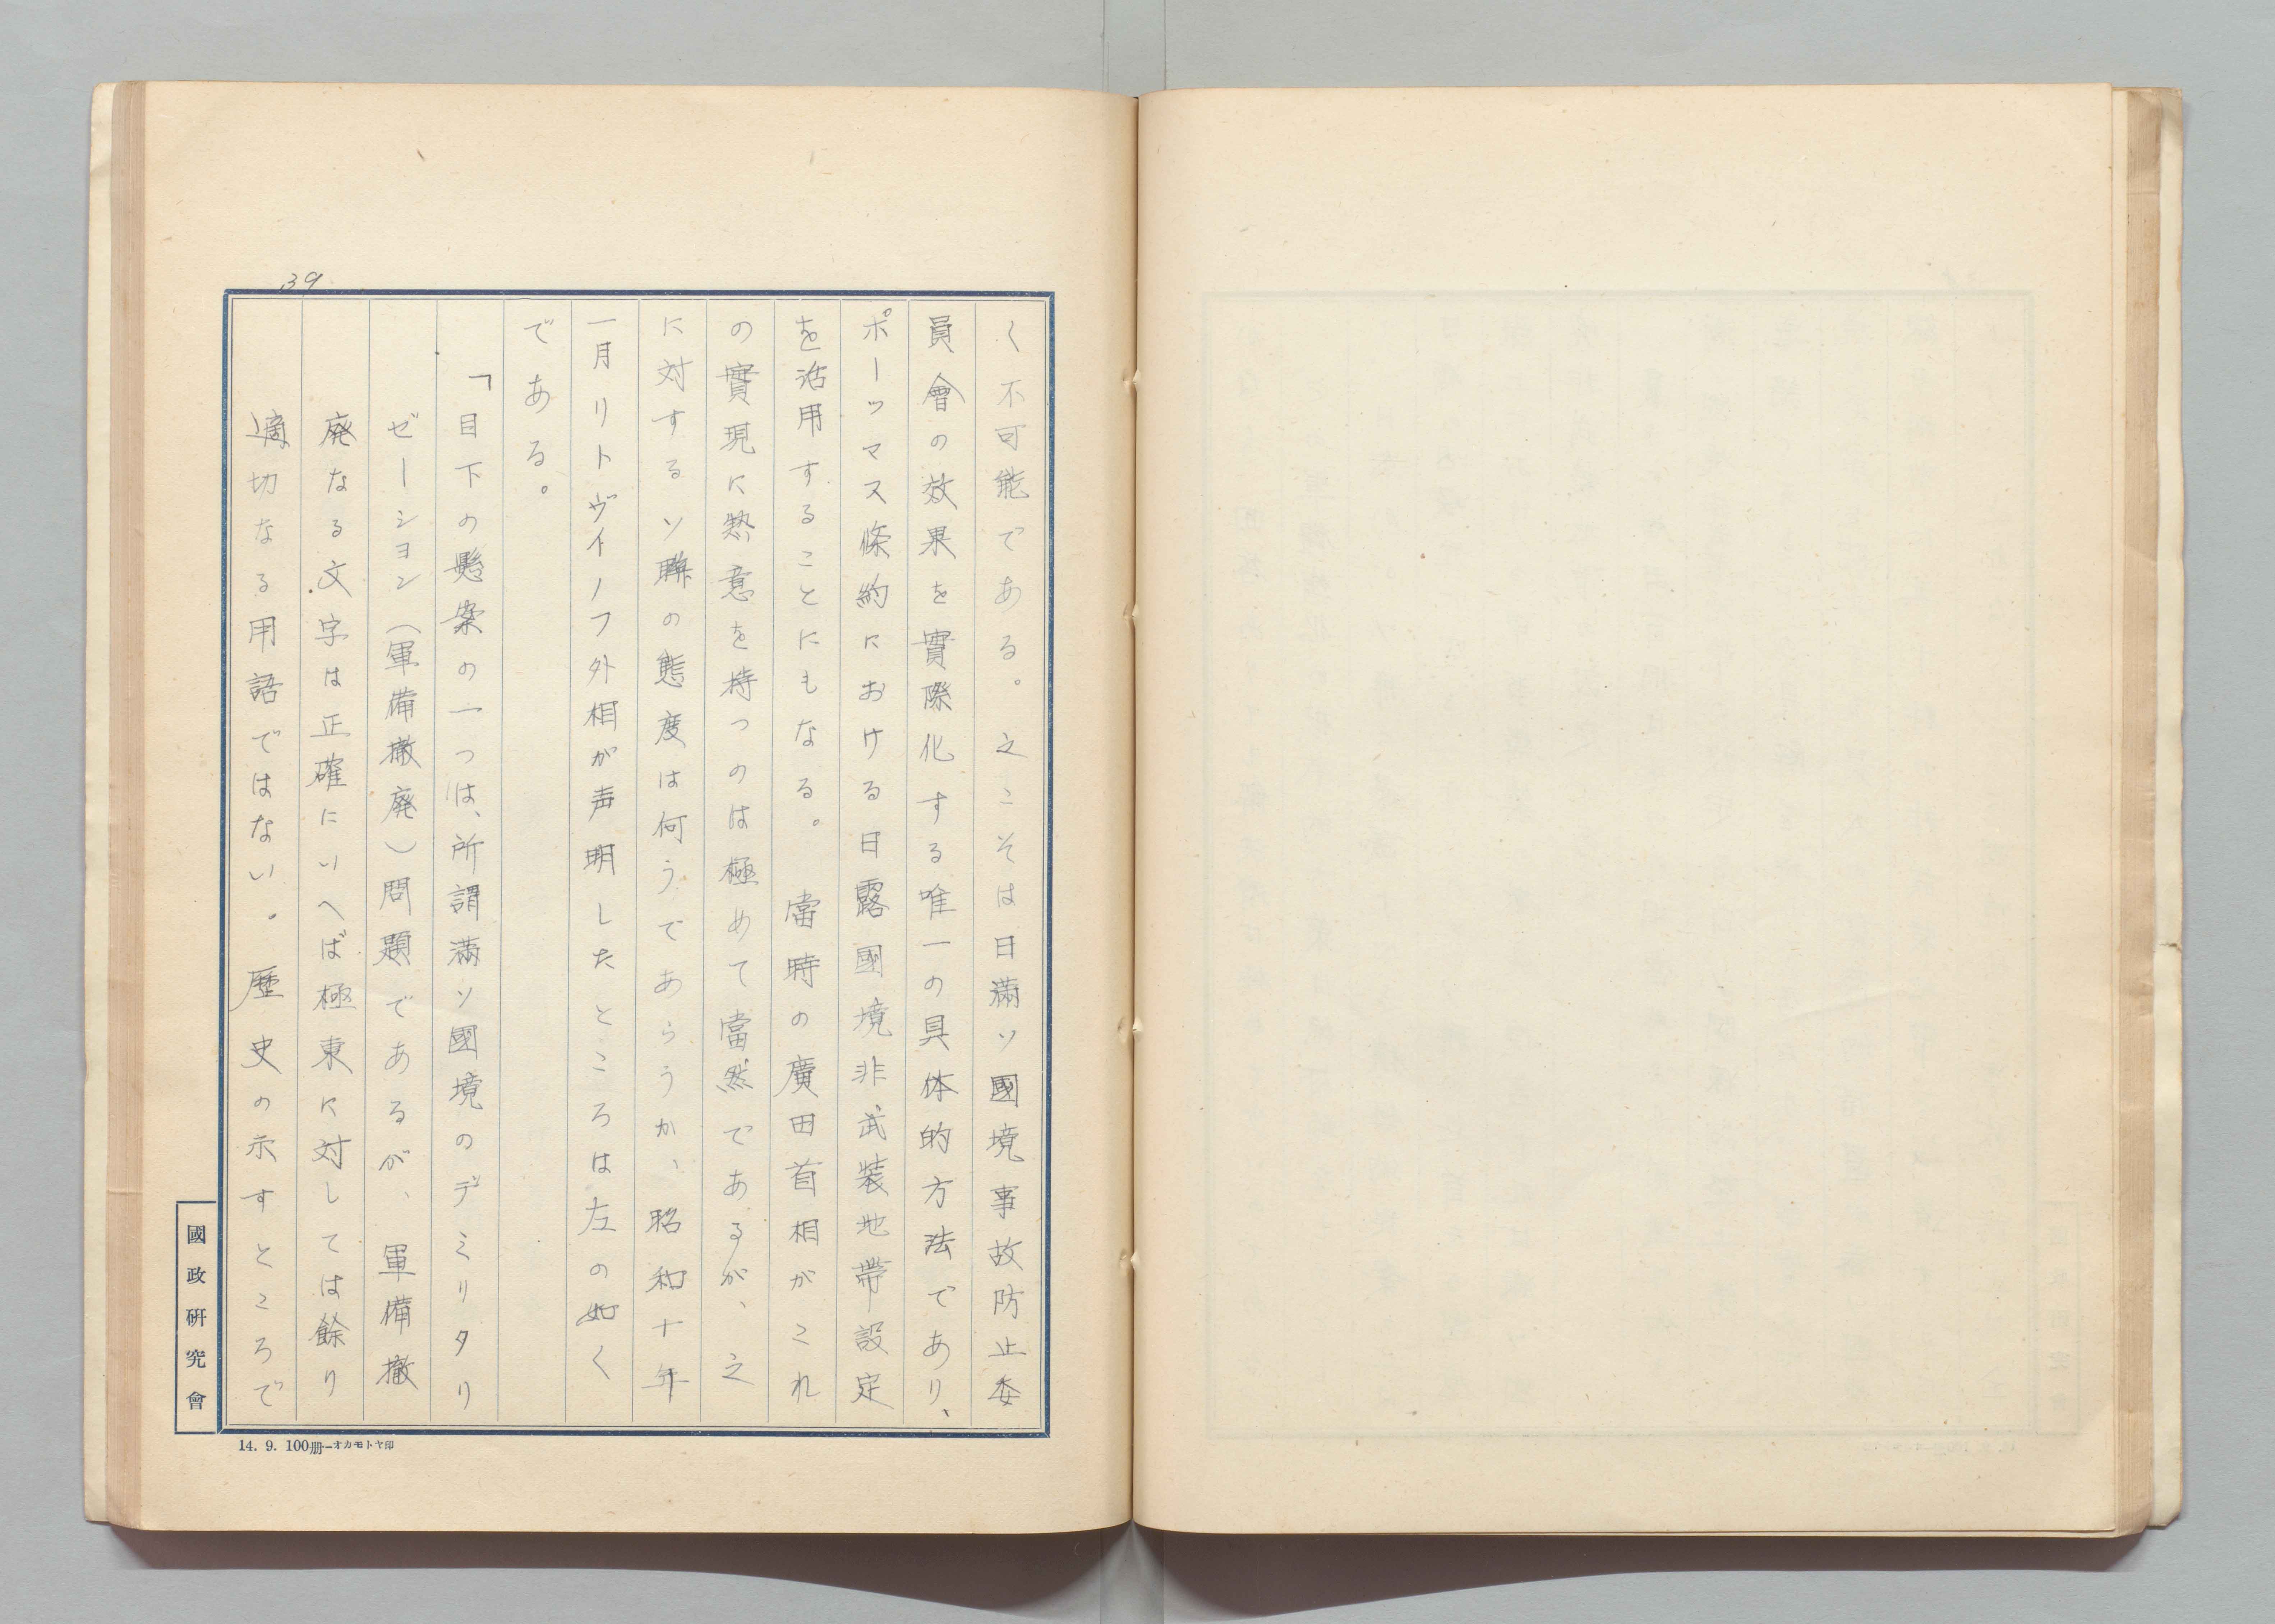 39
く不可能である。之こそは日滿ソ國境事故防止委
員會の效果を實際化する唯一の具体的方法であり、
ポーツマス條約における日露國境非武装地帶設定
を活用することにもなる。當時の廣田首相がこれ
の實現に熱意を持つのは極めて當然であるが、之
に対するソ聯の態度は何うであらうか、昭和十年
一月リトヴイノフ外相が声明したところは左の如く
である。
「目下の懸案の一つは、所謂滿ソ國境のデミリタリ
ゼーシヨン（軍備撤廃）問題であるが、軍備撤
廃なる文字は正確にいへば極東に対しては餘り
適切なる用語ではない。歴史の示すところで
國政研究會
14. 9. 100册—オカモトヤ印